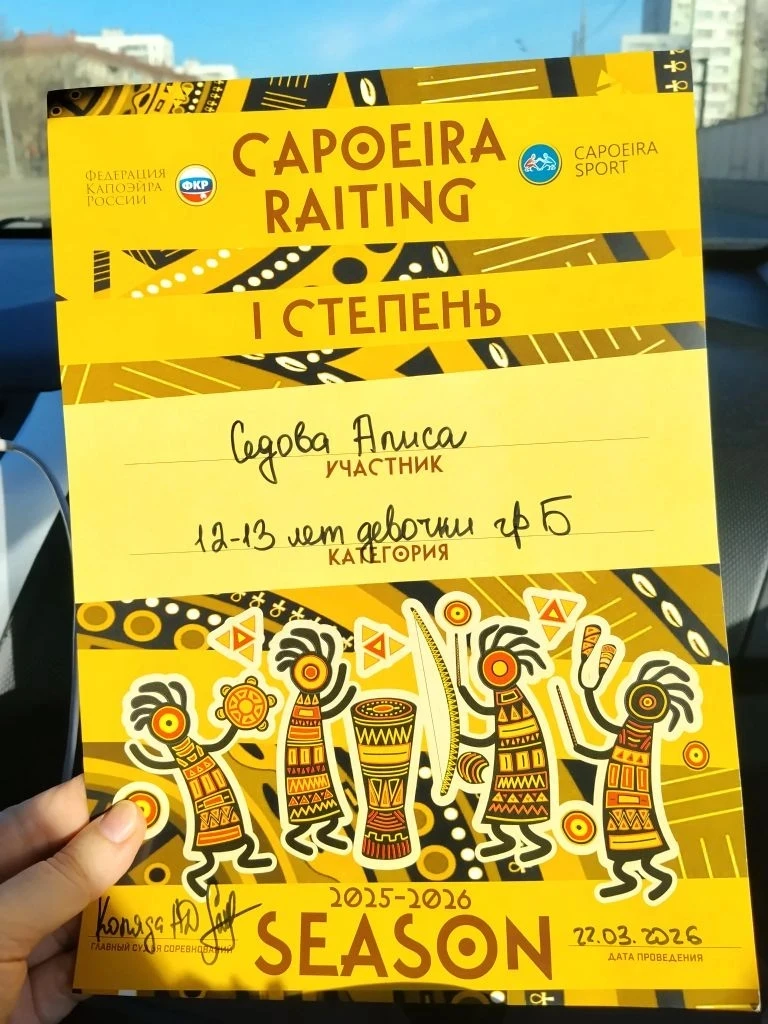 CAPOEIRA
RAITING
ФЕДЕРАЦИЯ
КАПОЭЙРА
РОССИИ
ФКР
CAPOEIRA
SPORT
I СТЕПЕНЬ
Седова Алиса
УЧАСТНИК
12-13 лет девочки гр Б
КАТЕГОРИЯ
2025-2026
SEASON
Коляда АД
ГЛАВНЫЙ СУДЬЯ СОРЕВНОВАНИЙ
22.03.2026
ДАТА ПРОВЕДЕНИЯ